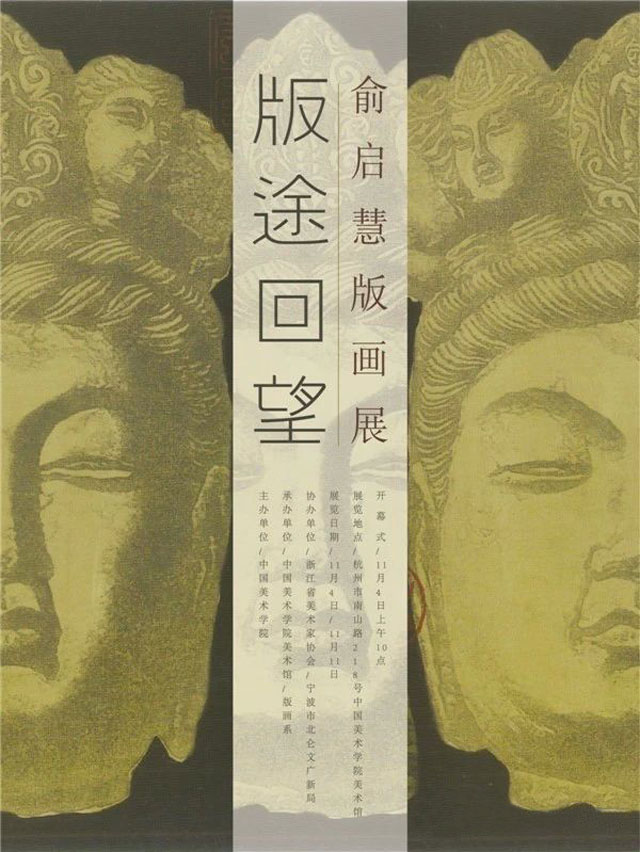 俞启慧版画展
版途回望
开幕式/11月4日上午10点
展览地点/杭州市南山路218号中国美术学院美术馆
展览日期/11月4日/11月11日
协办单位/浙江省美术家协会/宁波市北仑文广新局
承办单位/中国美术学院美术馆/版画系
主办单位/中国美术学院